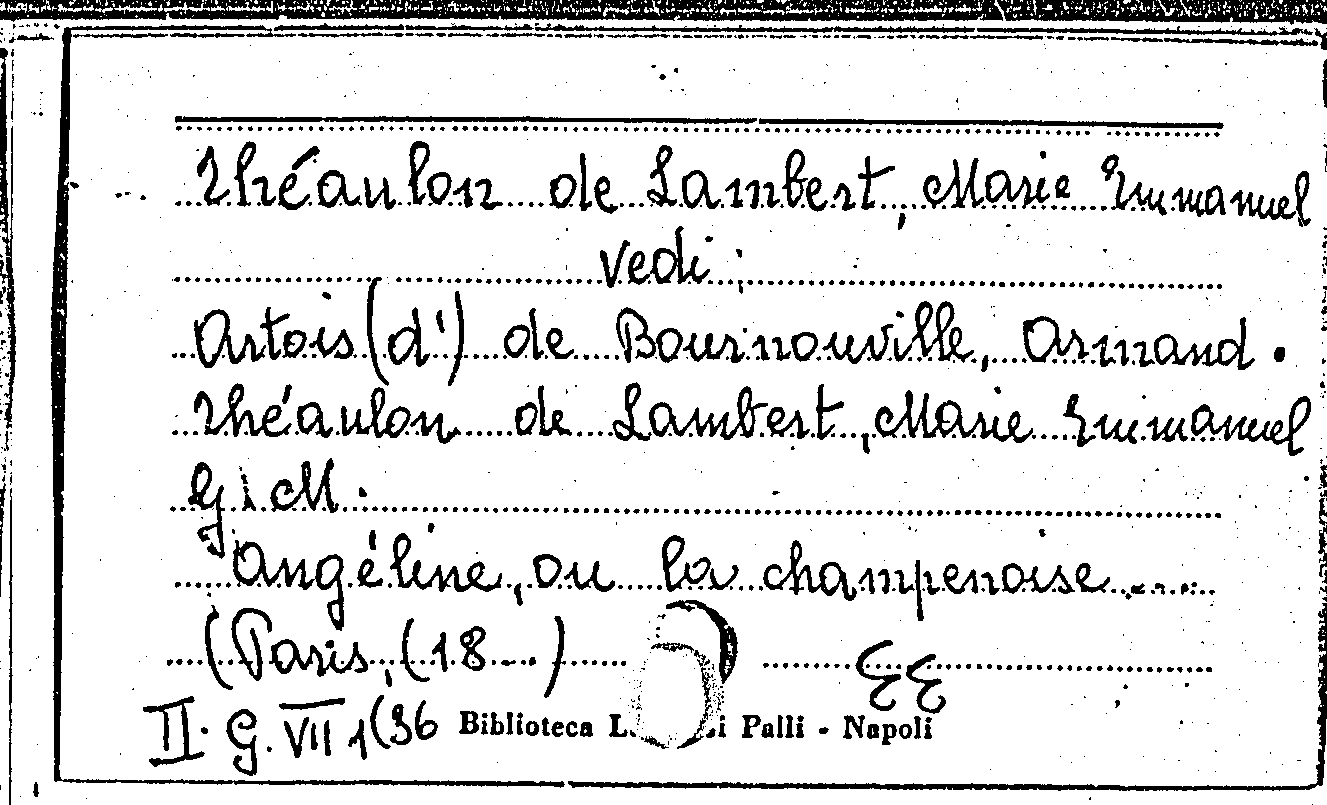 Théaulon de Lambert, Marie Emmanuel
vedi:
Artois (d') de Bournouville, Armand.
Théaulon de Lambert, Marie Emmanuel
G. M.
Angéline, ou la champenoise....
(Paris, (18...)
II. G. VII 1(36 Biblioteca L. i Palli - Napoli